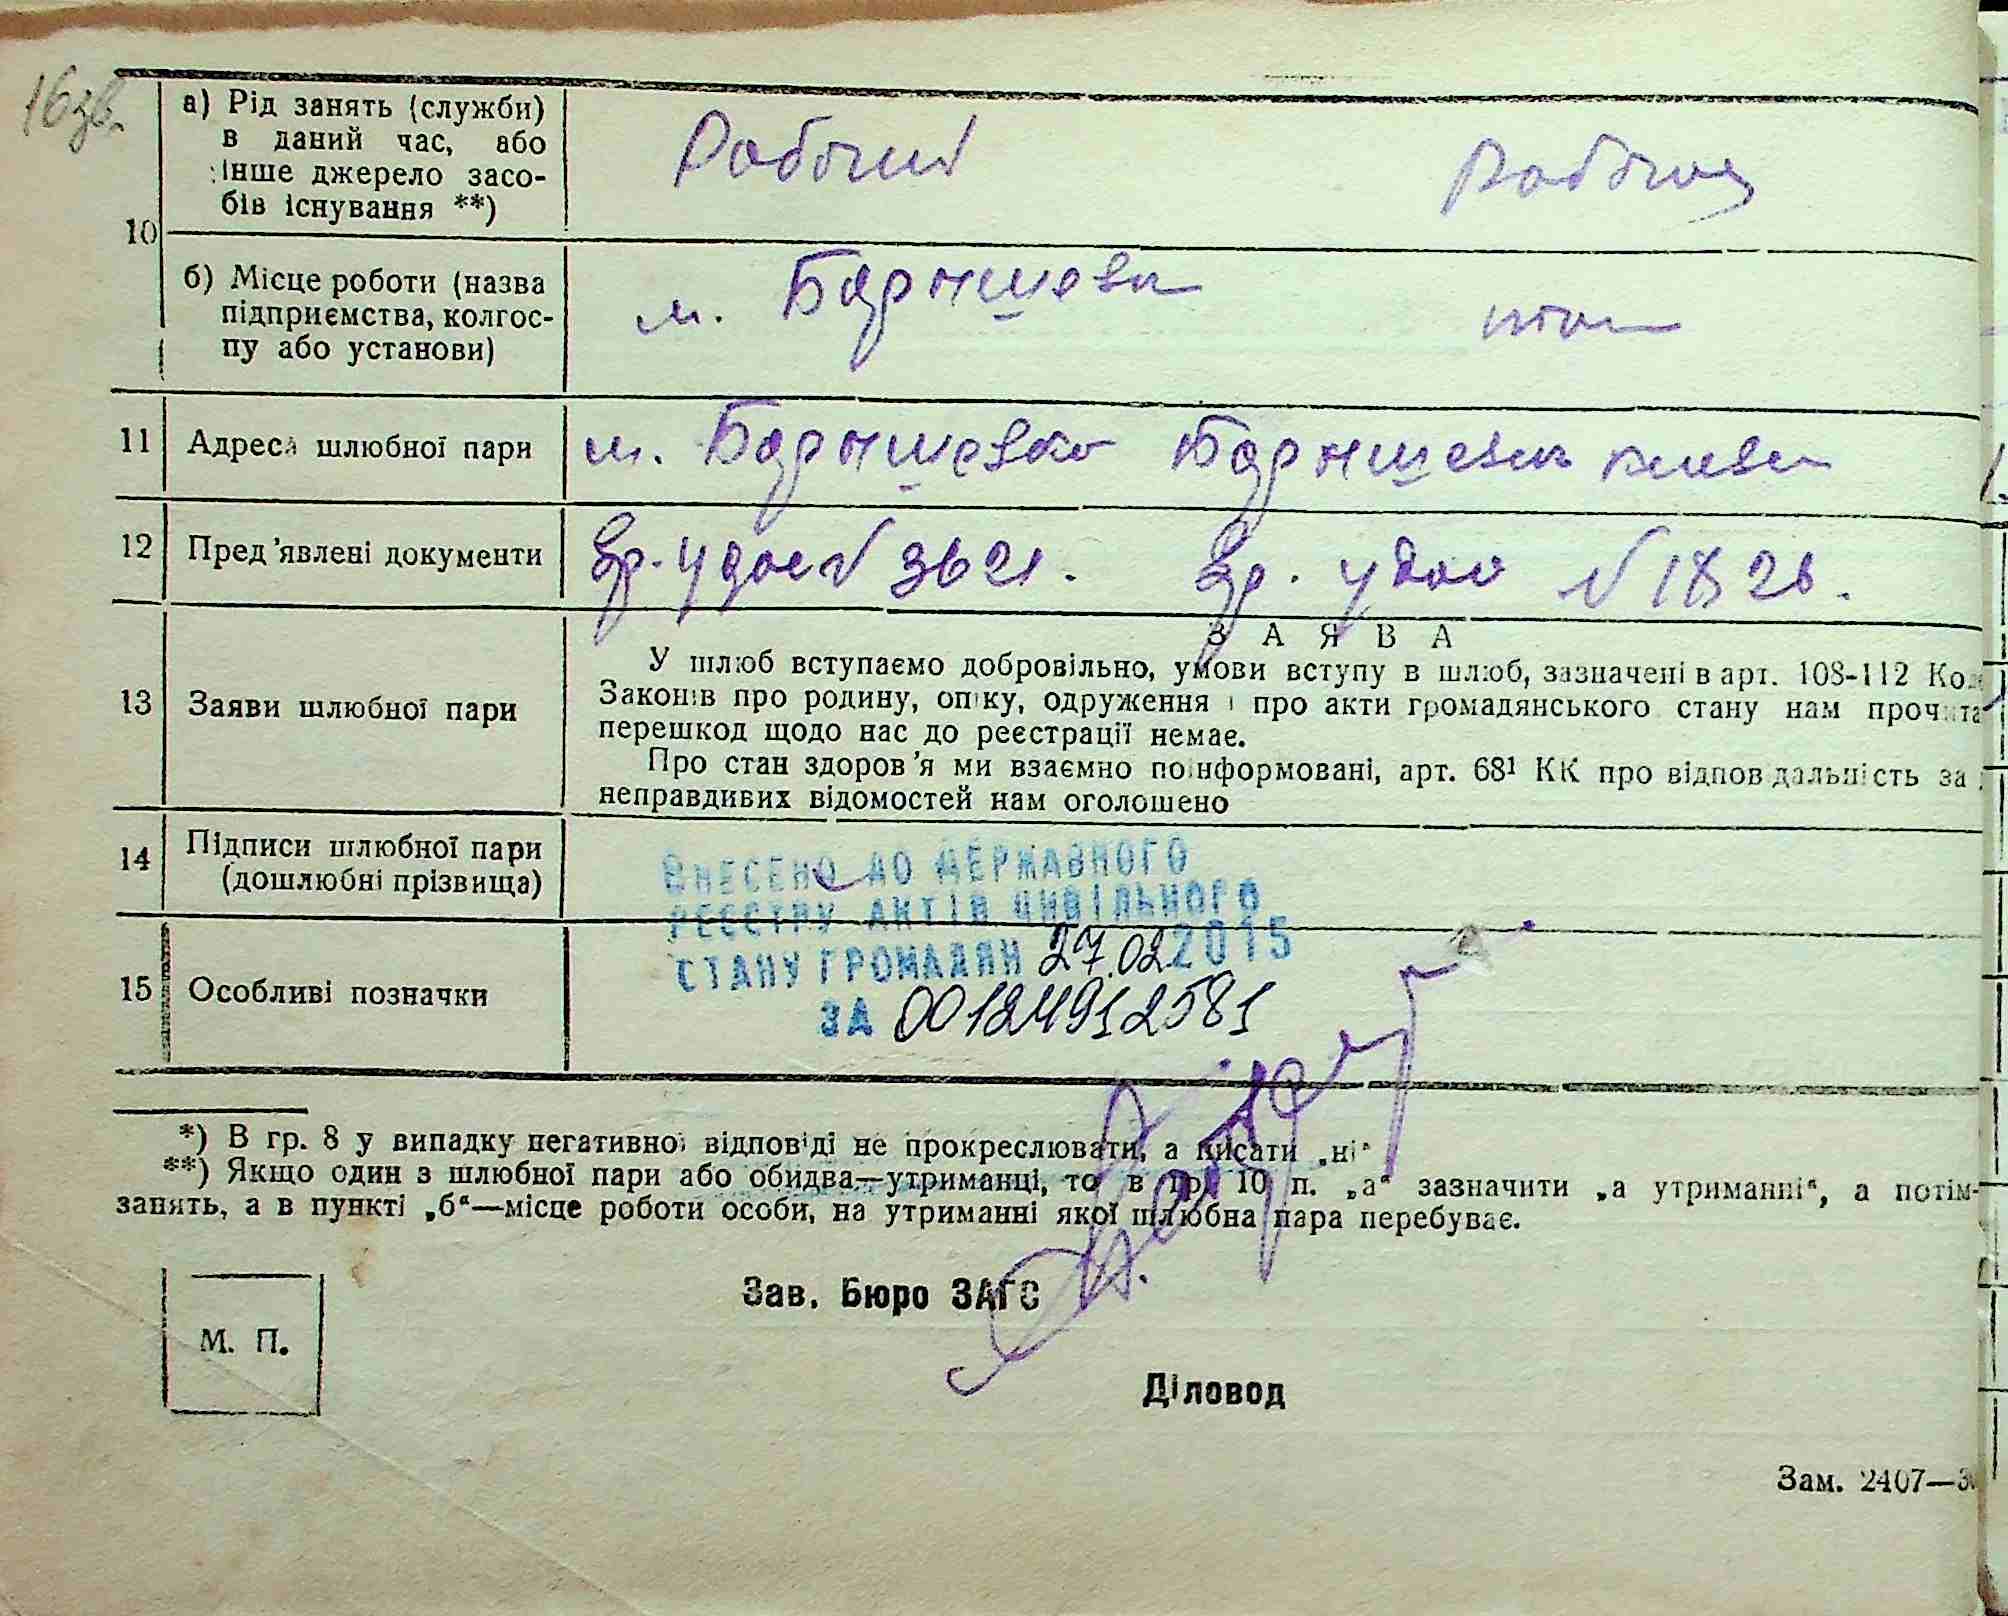 16 зв.
а) Рід занять (служби)
в даний час, або
інше джерело засо-
бів існування **)
Рабочий
Рабочая
10
б) Місце роботи (назва
підприємства, колгос-
пу або установи)
м. Барышевка
11 Адреса шлюбної пари м. Барышевка Барышевка
12 Пред'явлені документи № 3621. № 1826.
З А Я В А
13 Заяви шлюбної пари
У шлюб вступаємо добровільно, умови вступу в шлюб, зазначені в арт. 108-112 Ко
Законів про родину, опіку, одруження і про акти громадянського стану нам прочита
перешкод щодо нас до реєстрації немає.
Про стан здоров'я ми взаємно поінформовані, арт. 68¹ КК про відповідальність за
неправдивих відомостей нам оголошено
14 Підписи шлюбної пари
(дошлюбні прізвища)
ВНЕСЕНО ДО ДЕРЖАВНОГО
РЕЄСТРУ АКТІВ ЦИВІЛЬНОГО
СТАНУ ГРОМАДЯН 27.02.2015
ЗА 00124912581
15 Особливі позначки
*) В гр. 8 у випадку негативної відповіді не прокреслювати, а писати „ні“
**) Якщо один з шлюбної пари або обидва—утриманці, то в гр. 10 п. „а“ зазначити „а утриманні“, а потім-
занять, а в пункті „б“—місце роботи особи, на утриманні якої шлюбна пара перебуває.
Зав. Бюро ЗАГС
М. П.
Діловод
Зам. 2407—3